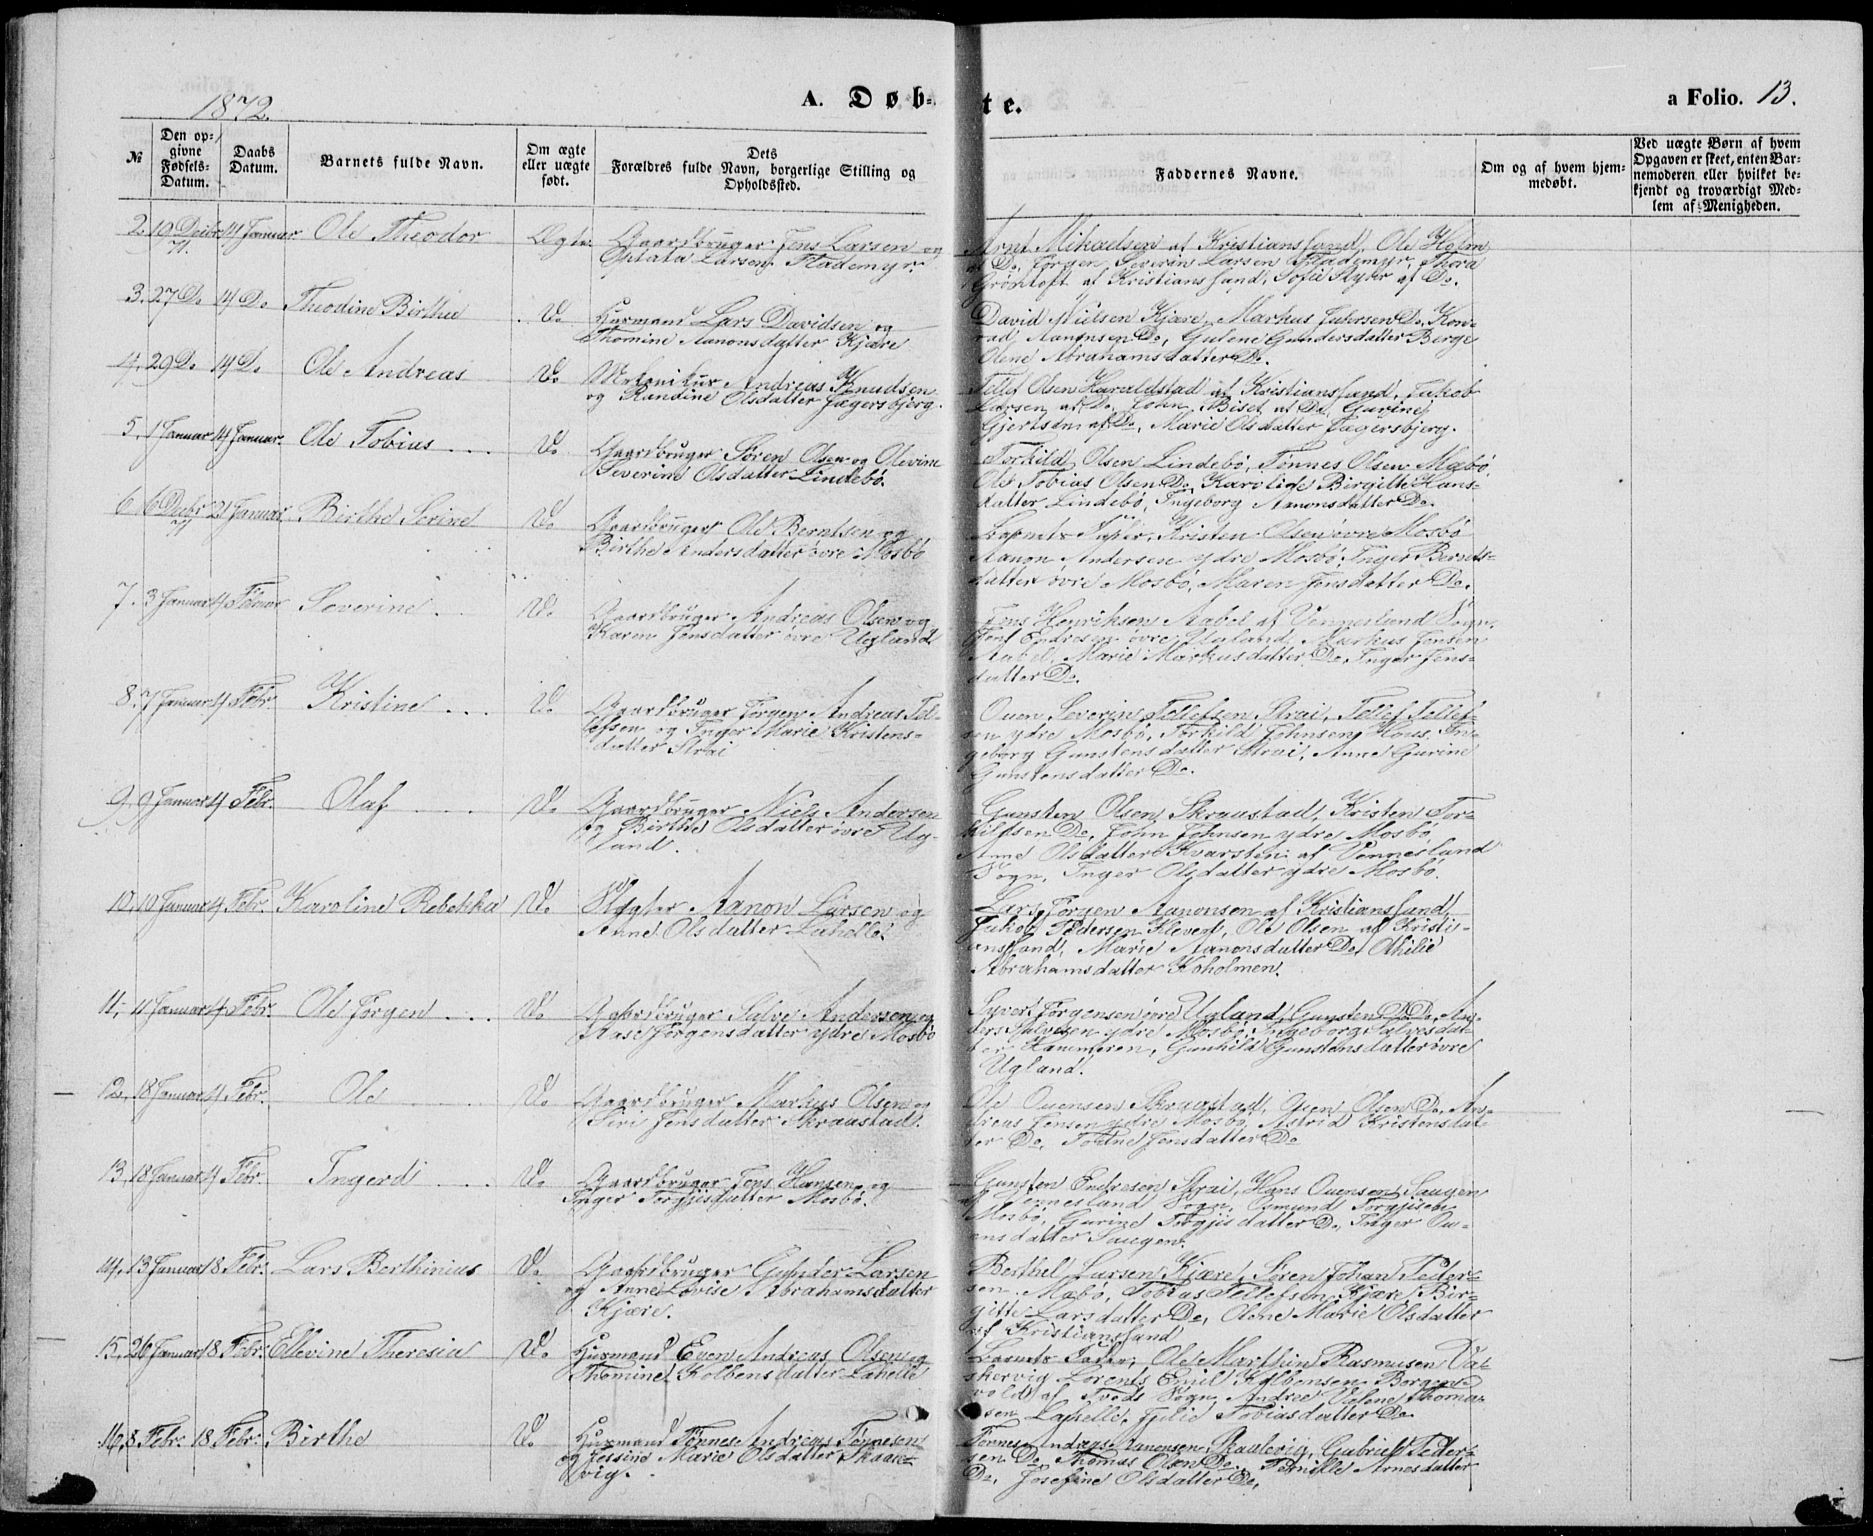 1872.
A. Døb-
te.
a Folio. 13.
№
Den op-
givne
Fødsels-
Datum.
Daabs
Datum.
Barnets fulde Navn.
Om ægte
eller uægte
født.
Dets
Forældres fulde Navn, borgerlige Stilling og
Opholdssted.
Faddernes Navne.
Om og af hvem hjem-
medøbt.
Ved uægte Børn af hvem
Opgaven er skeet, enten Bar-
nemoderen eller hvilket be-
kjendt og troværdigt Med-
lem af Menigheden.
2. 19 Decbr 71. 14 Januar Ole Theodor Ægte Gaardbruger Jens Larsen og
Optata Larsen Flademyr.
Arnt Mikaelsen af Kristianssand, Ole Holm
af Do, Jørgen Severin Larsen Flademyr, Thora
Grøntoft af Kristianssand, Sofie af Do.
3. 27 Do 14 Do Theodine Birthe Do Husmand Lars Davidsen og
Thomine Aanonsdatter Kjære
David Nielsen Kjære, Markus Do, Kon-
rad Aanonsen Do, Gulene Gundersdatter Berge
Olene Abrahamsdatter Do.
4. 29 Do 14 Do Ole Andreas Do Andreas Knudsen
og Randine Olsdatter Jægersbjerg.
Tellef Olsen Haraldstad af Kristianssand, Jakob
Larsen af Do, John Biset af Do, Gurine
Gjertsen af Do, Marie Olsdatter Jægersbjerg.
5. 1 Januar 14 Januar. Ole Tobias Do Gaardbruger Søren Olsen og Olevine
Severine Olsdatter Lindebø.
Torkild Olsen Lindebø, Tønnes Olsen Mæbø,
Ole Tobias Olsen Do, Karolide Birgitte Hans-
datter Lindebø, Ingeborg Aanonsdatter Do.
6 6 Decbr 71 21 Januar. Birthe Serine Do Gaardbruger Ole Berntsen og
Birthe Andersdatter øvre Mosbø
Barnets Fader, Kristen Olsen øvre Mosbø
Aanon Andersen ydre Mosbø, Inger Bernts-
datter øvre Mosbø, Maren Jensdatter Do.
7. 3 Januar 4 Februar Severine Do Gaardbruger Andreas Olsen og
Karen Jensdatter øvre Ugland
Jens Henriksen Aabel af Vennesland Sogn,
Endresen øvre Ugland, Markus Jensen
Aabel, Marie Markusdatter Do, Inger Jens-
datter Do.
8. 7 Januar 4 Febr. Kristine Do Gaardbruger Jørgen Andreas Tel-
lefsen og Inger Marie Kristens-
datter Strai
Ouen Severin Tellefsen Strai, Tellef Tellef-
sen ydre Mosbø, Torkild Johnsen Hous, In-
geborg Gunstensdatter Strai, Anne Gurine
Gunstensdatter Do.
9. 9 Januar 4 Febr. Olaf Do Gaardbruger Niels Andersen
og Birthe Olsdatter øvre Ug-
land.
Gunsten Olsen Skraustad, Kristen Tor-
kildsen Do, John Johnsen ydre Mosbø
Anne Olsdatter Kvarsten af Vennesland
Sogn, Inger Olsdatter ydre Mosbø.
10. 10 Januar 4 Febr. Karoline Rebekka Do Slagter Aanon Larsen og
Anne Olsdatter Lahelle.
Lars Jørgen Aanonsen af Kristianssand,
Jakob Pedersen Klevert, Ole Olsen af Kristi-
anssand, Marie Aanonsdatter Do, Othilie
Abrahamsdatter Koholmen.
11. 11 Januar 4 Febr. Ole Jørgen Do Gaardbruger Salve Andersen og
Aase Jørgensdatter ydre Mosbø
Syvert Jørgensen øvre Ugland, Gunsten Do Do, An-
ders Salvesen ydre Mosbø, Ingeborg Salvesdat-
ter Kammeren, Gunhild Gunstensdatter øvre
Ugland.
12. 18 Januar 4 Febr. Ole Do Gaardbruger Markus Olsen og
Siri Jensdatter Skraustad.
Ole Ouensen Skraastad, Olsen Do, An-
dreas Jensen ydre Mosbø, Astrid Kristensdat-
ter Do, Jensdatter Do
13. 18 Januar 4 Febr. Ingerd Do Gaardbruger Jens Hansen og
Inger Torgjisdatter Mosbø.
Gunsten Endresen Strai, Hans Ouensen Saugen
af Vennesland Sogn, Osmund Torgjisen
Mosbø, Gurine Torgjisdatter Do, Inger Ou-
ensdatter Saugen.
14. 13 Januar 18 Febr. Lars Berthinius Do Gaardbruger Gunder Larsen
og Anne Lovise Abrahamsdatter
Kjære.
Berthel Larsen Kjære, Søren Johan Peder-
sen Mæbø, Tobias Tellefsen Kjære, Bir-
gitte Larsdatter Do, Olene Marie Olsdatter
af Kristianssand
15. 26 Januar 18 Febr. Ellevine Theresia Do Husmand Even Andreas Olsen og
Thomine Kolbensdatter Lahelle
Barnets Fader, Ole Marthin Rasmusen Va-
skervig, Lorents Emil Kolbensen Borgen-
vold af Tveds Sogn, Andrea Velene Thoma-
sen Lahelle, Tobiasdatter Do
16. 8 Febr. 18 Febr. Birthe Do Husmand Tønnes Andreas Tønnesen
og Jessine Marie Olsdatter Skaale-
vig.
Tønnes Andreas Aanonsen Skaalevig, Gabriel Peder-
sen Do, Thomas Olsen Do, Pernille Arnesdatter
Do, Josefine Olsdatter Do.